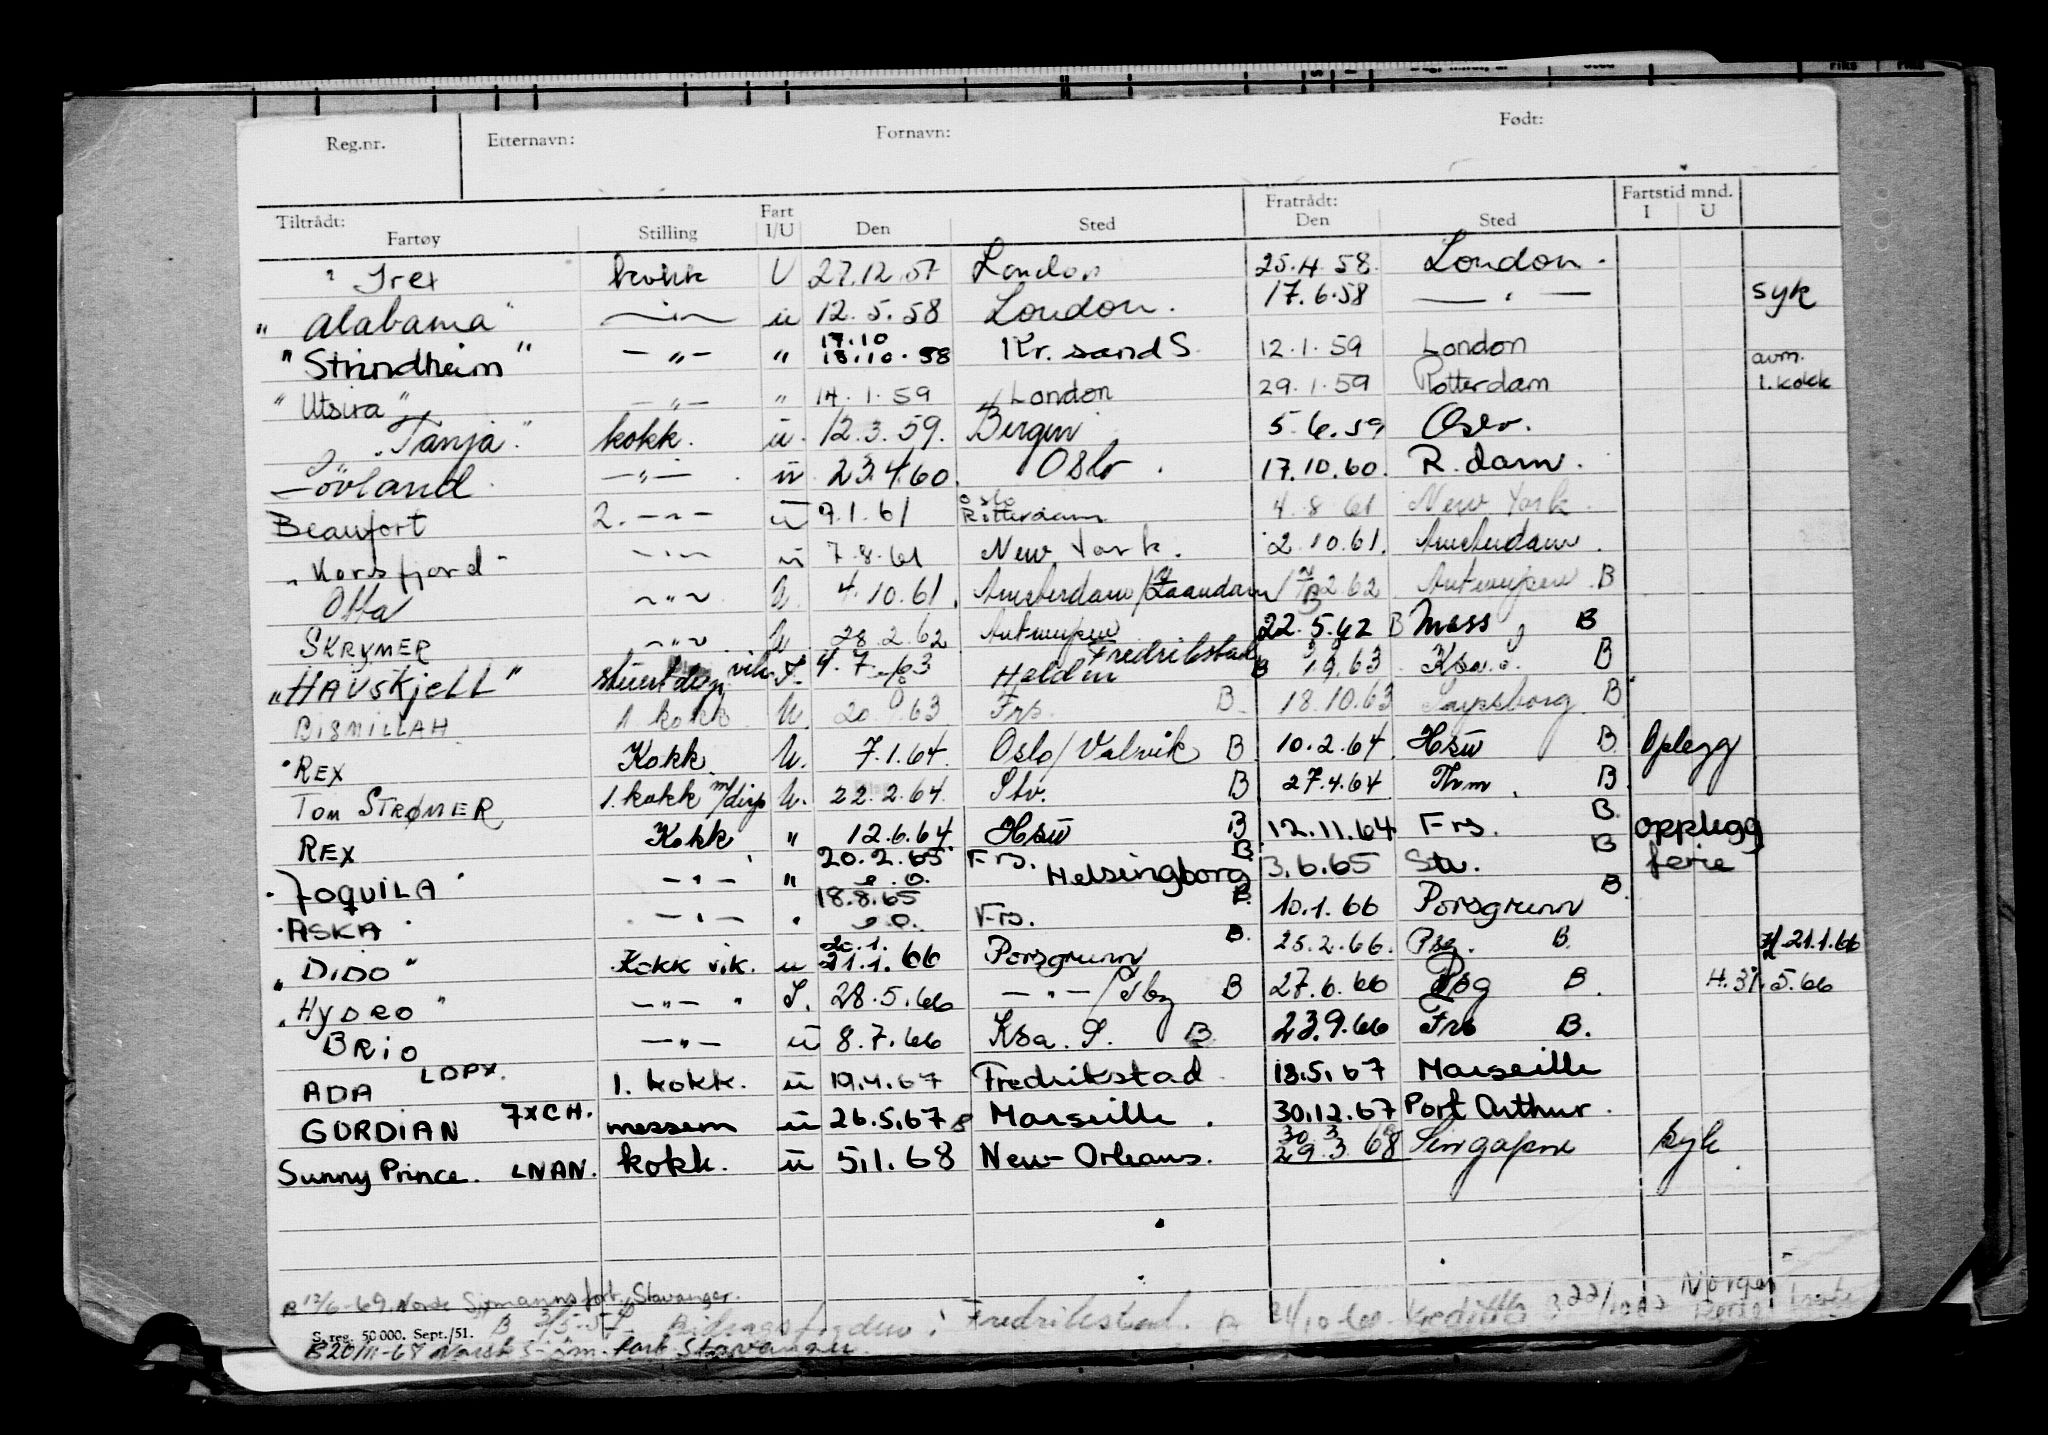 Reg.nr. Etternavn: Fornavn: Født:
Tiltrådt: Fart Fratrådt: Fartstid mnd.
Fartøy Stilling I/U Den Sted Den Sted I U
" Irex kokk U 27.12.57 London 25.4.58. London.
"Alabama" —"— u 12.5.58 London. 17.6.58 —"— syk
"Strindheim" —"— " 17.10 18.10.58 Kr.sand S. 12.1.59 London avm.
"Utsira" —"— " 14.1.59 London 29.1.59 Rotterdam 1. kokk
"Tanja" kokk. u. 12.3.59. Bergen 5.6.59 Oslo.
Lövland —"— u 23.4.60. Oslo. 17.10.60. R.dam.
Beaufort 2. —"— u 9.1.61 Oslo Rotterdam 4.8.61 New York.
"Korsfjord" —"— u 7.8.61 New York. 2.10.61. Amsterdam.
Otta —"— U. 4.10.61. Amsterdam/Zaandam 2.62 Antwerpen B
SKRYMER —"— U 28.2.62 Antwerpen 22.5.62 B Moss B
"HAVSKJELL" stuert vik. I. 4.7.63 Halden Fredrikstad B 1.9.63 Ksa. B
BISMILLAH 1. kokk U. 20.9.63 Frs. B. 18.10.63 Sarpsborg B
"REX Kokk U. 7.1.64. Oslo/Valvik B 10.2.64. Hsw B Oplegg
TOM STRØMER 1. kokk m/disp U. 22.2.64. Stv. B 27.4.64 Thm. B
REX Kokk " 12.6.64 Hsw B 12.11.64 Frs. B. opplegg
"JOQUILA" —"— " 20.2.65 e.o. Frs. Helsingborg B 3.6.65 Stv. B ferie
"ASKA" —"— " 18.8.65 e.o. Frs. B. 10.1.66 Porsgrunn B
"DIDO" Kokk vik. u 20.1. 21.1.66 Porsgrunn B. 25.2.66. Psg. B. H 21.1.66
"HYDRO" —"— " I. 28.5.66 —"—/ B 27.6.66 Psg B. H. 31.5.66
BRIO —"— u 8.7.66 Ksa. S. B. 23.9.66 Frs B.
ADA LDPX. 1. kokk. u 19.4.67 Fredrikstad 18.5.67 Marseille
GORDIAN 7XCH. messem u 26.5.67 B Marseille. 30.12.67 Port Arthur.
Sunny Prince. LNAN. kokk. u 5.1.68 New-Orleans. 30.3 29.3.68 Singapore syk
B 12/6-69. Norsk Sjømannsfort, Stavanger.
S. reg. 50 000. Sept./51. B 3/5-57 Bidragsfogden i Fredrikstad. B 21/10-60
B 20/11-68 Norsk Sjøm.fort Stavanger.